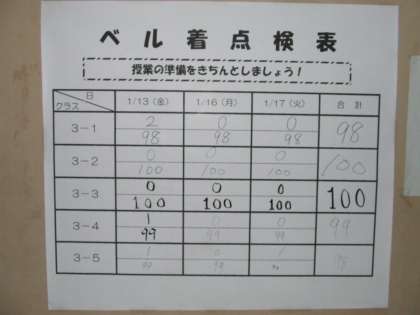 ベル着点検表
授業の準備をきちんとしましょう！
日 1/13(金) 1/16(月) 1/17(火) 合計
クラス
3-1 2 0 0 98
98 98 98
3-2 0 0 0 100
100 100 100
3-3 0 0 0 100
100 100 100
3-4 1 0 0 99
99 99 99
3-5 1 0 1
99